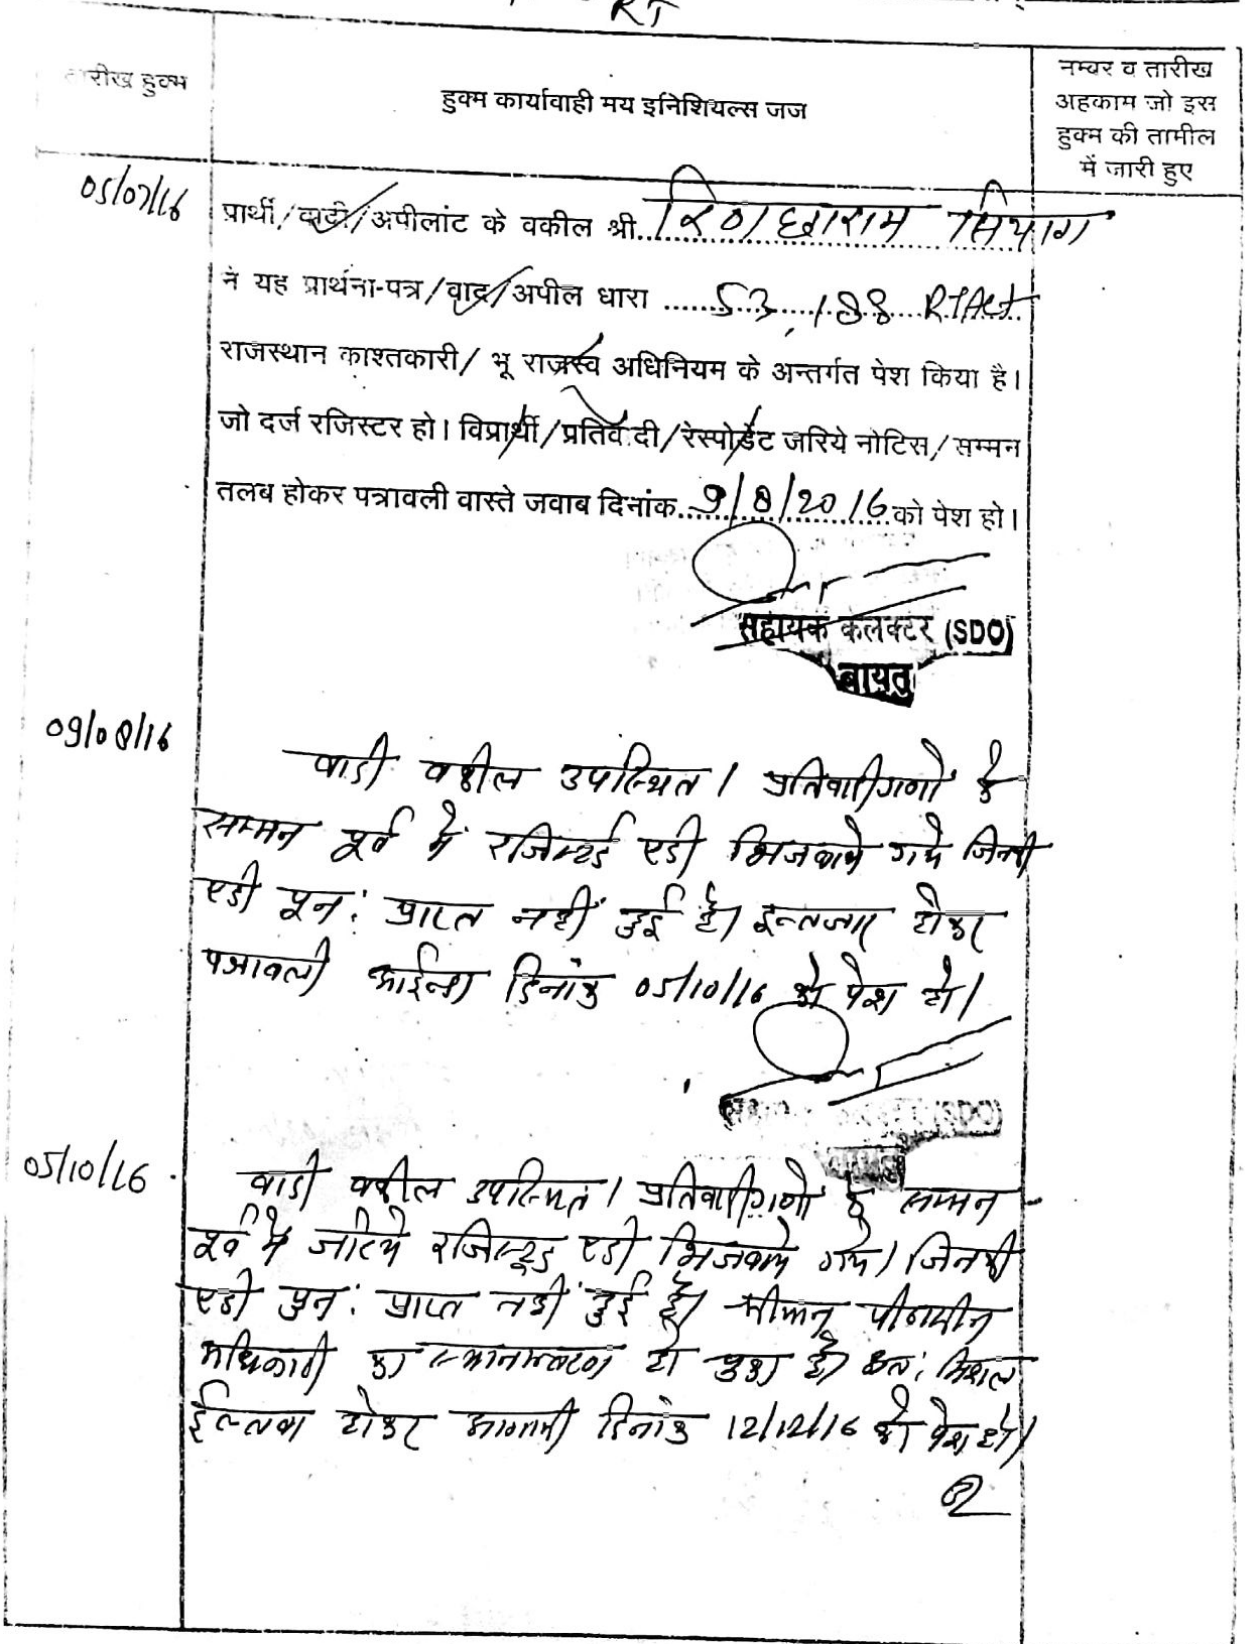 RT
तारीख हुक्म
हुक्म कार्यावाही मय इनिशियल्स जज
नम्बर व तारीख
अहकाम जो इस
हुक्म की तामील
में जारी हुए
05/07/16
प्रार्थी/वादी/अपीलांट के वकील श्री. सियाग
ने यह प्रार्थना-पत्र/वाद/अपील धारा ......53,188 RTAct
राजस्थान काश्तकारी/ भू राजस्व अधिनियम के अन्तर्गत पेश किया है।
जो दर्ज रजिस्टर हो। विप्रार्थी/प्रतिवादी/रेस्पोडेंट जरिये नोटिस/सम्मन
तलब होकर पत्रावली वास्ते जवाब दिनांक..9/8/2016 को पेश हो।
सहायक कलक्टर (SDO)
बायतु
09/08/16
वादी वकील उपस्थित। प्रतिवादीगणों के
सम्मन पूर्व में रजिस्टर्ड एडी भिजवाये गये जिनकी
एडी पुन: प्राप्त नहीं हुई है। इन्तजार होकर
पत्रावली आईन्दा दिनांक 05/10/16 को पेश हो।
(SDO)
05/10/16
वादी वकील उपस्थित। प्रतिवादीगणों के सम्मन
पूर्व में जरिये रजिस्टर्ड एडी भिजवाये गये। जिनकी
एडी पुन: प्राप्त नहीं हुई है। श्रीमान पीठासीन
अधिकारी का स्थानान्तरण हो चुका है। अत: मिशल
ईल्तवा होकर आगामी दिनांक 12/12/16 को पेश हो।